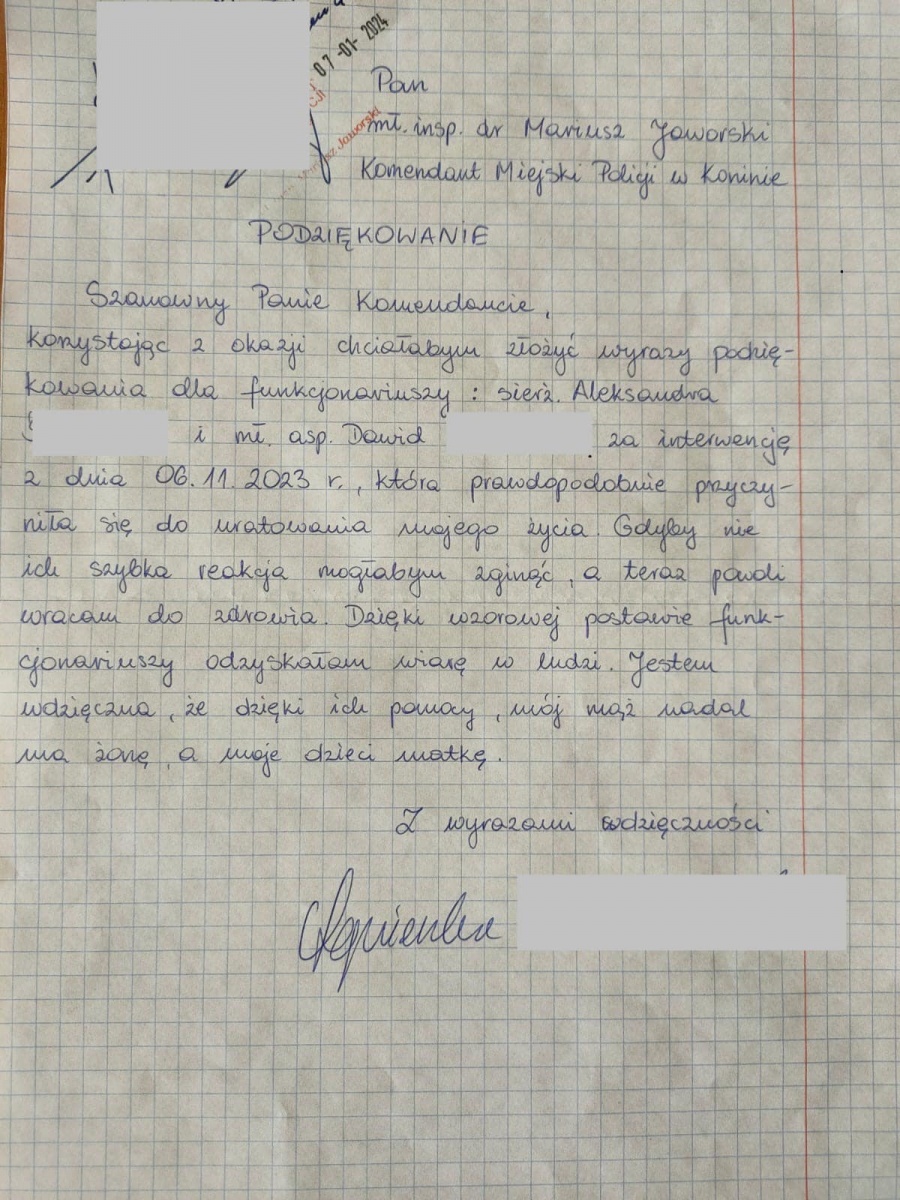 07-01-2024
Jaworski
Pan
mł. insp. dr Mariusz Jaworski
Komendant Miejski Policji w Koninie
PODZIĘKOWANIE
Szanowny Panie Komendancie,
korzystając z okazji chciałabym złożyć wyrazy podzię-
kowania dla funkcjonariuszy : sierż. Aleksandra
i mł. asp. Dawid za interwencję
z dnia 06.11.2023 r., która prawdopodobnie przyczy-
niła się do uratowania mojego życia. Gdyby nie
ich szybka reakcja mogłabym zginąć, a teraz powoli
wracam do zdrowia. Dzięki wzorowej postawie funk-
cjonariuszy odzyskałam wiarę w ludzi. Jestem
wdzięczna, że dzięki ich pomocy, mój mąż nadal
ma żonę, a moje dzieci matkę.
Z wyrazami wdzięczności